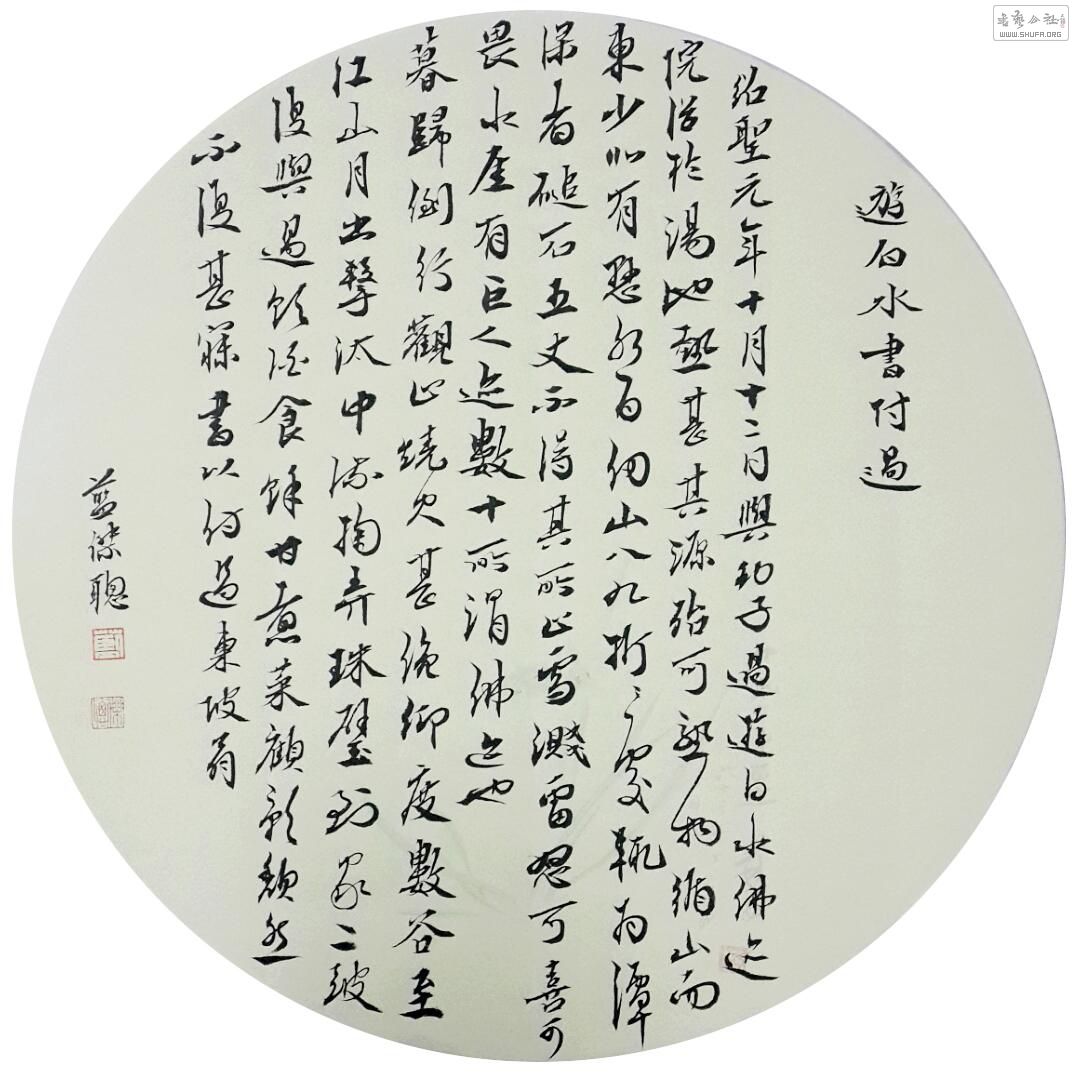 遊白水書付過
紹聖元年十月十二日與幼子過遊白水佛迹
院浴於湯池熱甚其源殆可熟物循山而
東少北有懸水百仞山八九折々處輒為潭
深者磓石五丈不得其所止雪濺雷怒可喜可
畏水崖有巨人迹數十所謂佛迹也
暮歸倒行觀山燒火甚俛仰度數谷至
江山月出擊汰中流掬弄珠璧到家二鼓
復與過飲酒食餘甘煮菜顧影頹然
不復甚寐書以付過東坡翁
藍傑聰
書藝公社
WWW.SHUFA.ORG